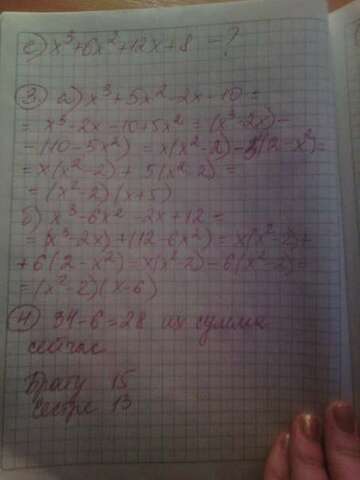 с) x³+6x²+12x+8 - ?
3. а) x³+5x²-2x-10=
= x³-2x-10+5x² = (x³-2x)-
-(10-5x²) = x(x²-2)-5(2-x²)=
= x(x²-2)+5(x²-2)=
= (x²-2)(x+5)
б) x³-6x²-2x+12=
= (x³-2x)+(12-6x²)=x(x²-2)+
+6(2-x²)=x(x²-2)-6(x²-2)=
= (x²-2)(x-6)
4. 34-6=28 их сумма
сейчас
Брату 15
Сестре 13